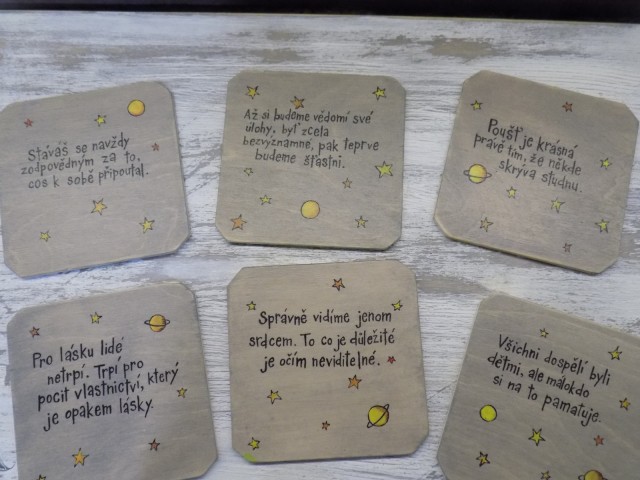 Stáváš se navždy
zodpovědným za to,
cos k sobě připoutal.
Až si budeme vědomí své
úlohy, byť zcela
bezvýznamné, pak teprve
budeme šťastni.
Poušť je krásná
právě tím, že někde
skrývá studnu.
Pro lásku lidé
netrpí. Trpí pro
pocit vlastnictví, který
je opakem lásky.
Správně vidíme jenom
srdcem. To co je důležité
je očím neviditelné.
Všichni dospělí byli
dětmi, ale málokdo
si na to pamatuje.